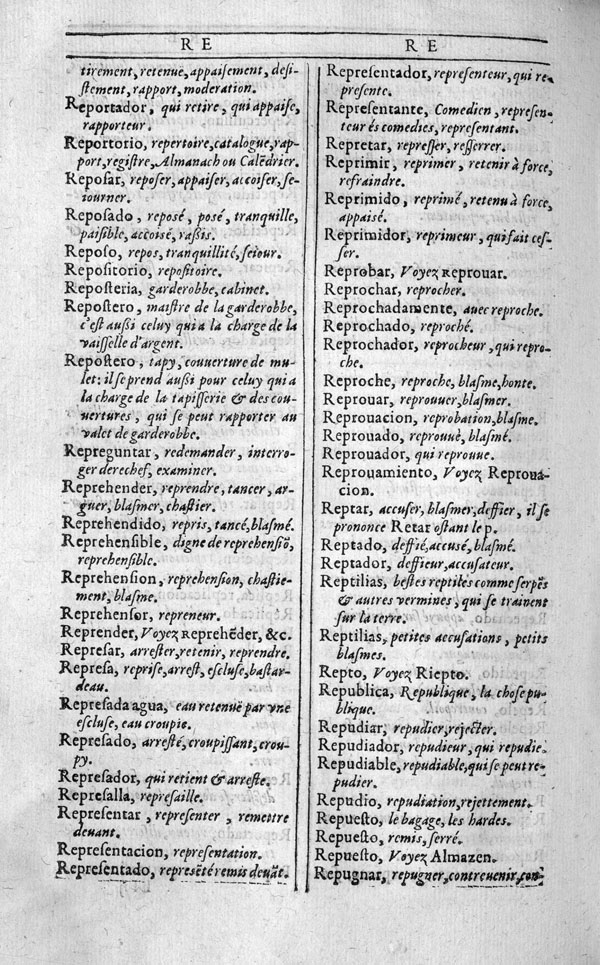 RE
tirement, retenuë, appaiſement, deſi-
ſtement, rapport, moderation.
Reportador, qui retire, qui appaiſe,
rapporteur.
Reportorio, repertoire, catalogue, rap-
port, regiſtre, Almanach ou Calẽdrier.
Repoſar, repoſer, appaiſer, accoiſer, ſe-
iourner.
Repoſado, repoſé, poſé, tranquille,
paiſible, accoisé, raßis.
Repoſo, repos, tranquillité, ſeiour.
Repoſitorio, repoſitoire.
Repoſteria, garderobbe, cabinet.
Repoſtero, maiſtre de la garderobbe,
c'eſt außi celuy qui a la charge de la
vaiſſelle d'argent.
Repoſtero, tapy, couuerture de mu-
let: il ſe prend außi pour celuy qui a
la charge de la tapiſſerie & des cou-
uertures, qui ſe peut rapporter au
valet de garderobbe.
Repreguntar, redemander, interro-
ger derechef, examiner.
Reprehender, reprendre, tancer, ar-
guer, blaſmer, chaſtier.
Reprehendido, repris, tancé, blaſmé.
Reprehenſible, digne de reprehenſiõ,
reprehenſible.
Reprehenſion, reprehenſion, chaſtie-
ment, blaſme.
Reprehenſor, repreneur.
Reprender, Voyez Reprehẽder, &c.
Repreſar, arreſter, retenir, reprendre.
Repreſa, repriſe, arreſt, eſcluſe, baſtar-
deau.
Repreſada agua, eau retenuë par vne
eſcluſe, eau croupie.
Repreſado, arreſté, croupiſſant, crou-
py.
Repreſador, qui retient & arreſte.
Repreſalla, repreſaille.
Repreſentar, repreſenter, remettre
deuant.
Repreſentacion, repreſentation.
Repreſentado, repreſẽté remis deuãt.
RE
Repreſentador, repreſenteur, qui re-
preſente.
Repreſentante, Comedien, repreſen-
teur és comedies, repreſentant.
Repretar, repreſſer, reſſerrer.
Reprimir, reprimer, retenir à force,
refraindre.
Reprimido, reprimé, retenu à force,
appaisé.
Reprimidor, reprimeur, qui fait ceſ-
ſer.
Reprobar, Voyez Reprouar.
Reprochar, reprocher.
Reprochadamente, auec reproche.
Reprochado, reproché.
Reprochador, reprocheur, qui repro-
che.
Reproche, reproche, blaſme, honte.
Reprouar, reprouuer, blaſmer.
Reprouacion, reprobation, blaſme.
Reprouado, reprouuè, blaſmé.
Reprouador, qui reprouue.
Reprouamiento, Voyez Reproua-
cion.
Reptar, accuſer, blaſmer, deffier, il ſe
prononce Retar oſtant le p.
Reptado, deffié, accusé, blaſmé.
Reptador, deffieur, accuſateur.
Reptilias, beſtes reptiles comme ſerpẽs
& autres vermines, qui ſe trainent
ſur la terre.
Reptilias, petites accuſations, petits
blaſmes.
Repto, Voyez Riepto.
Republica, Republique, la choſe pu-
blique.
Repudiar, repudier, rejecter.
Repudiador, repudieur, qui repudie.
Repudiable, repudiable, qui ſe peut re-
pudier.
Repudio, repudiation, rejettement.
Repueſto, le bagage, les hardes.
Repueſto, remis, ſerré.
Repueſto, Voyez Almazen.
Repugnar, repugner, contreuenir, con-